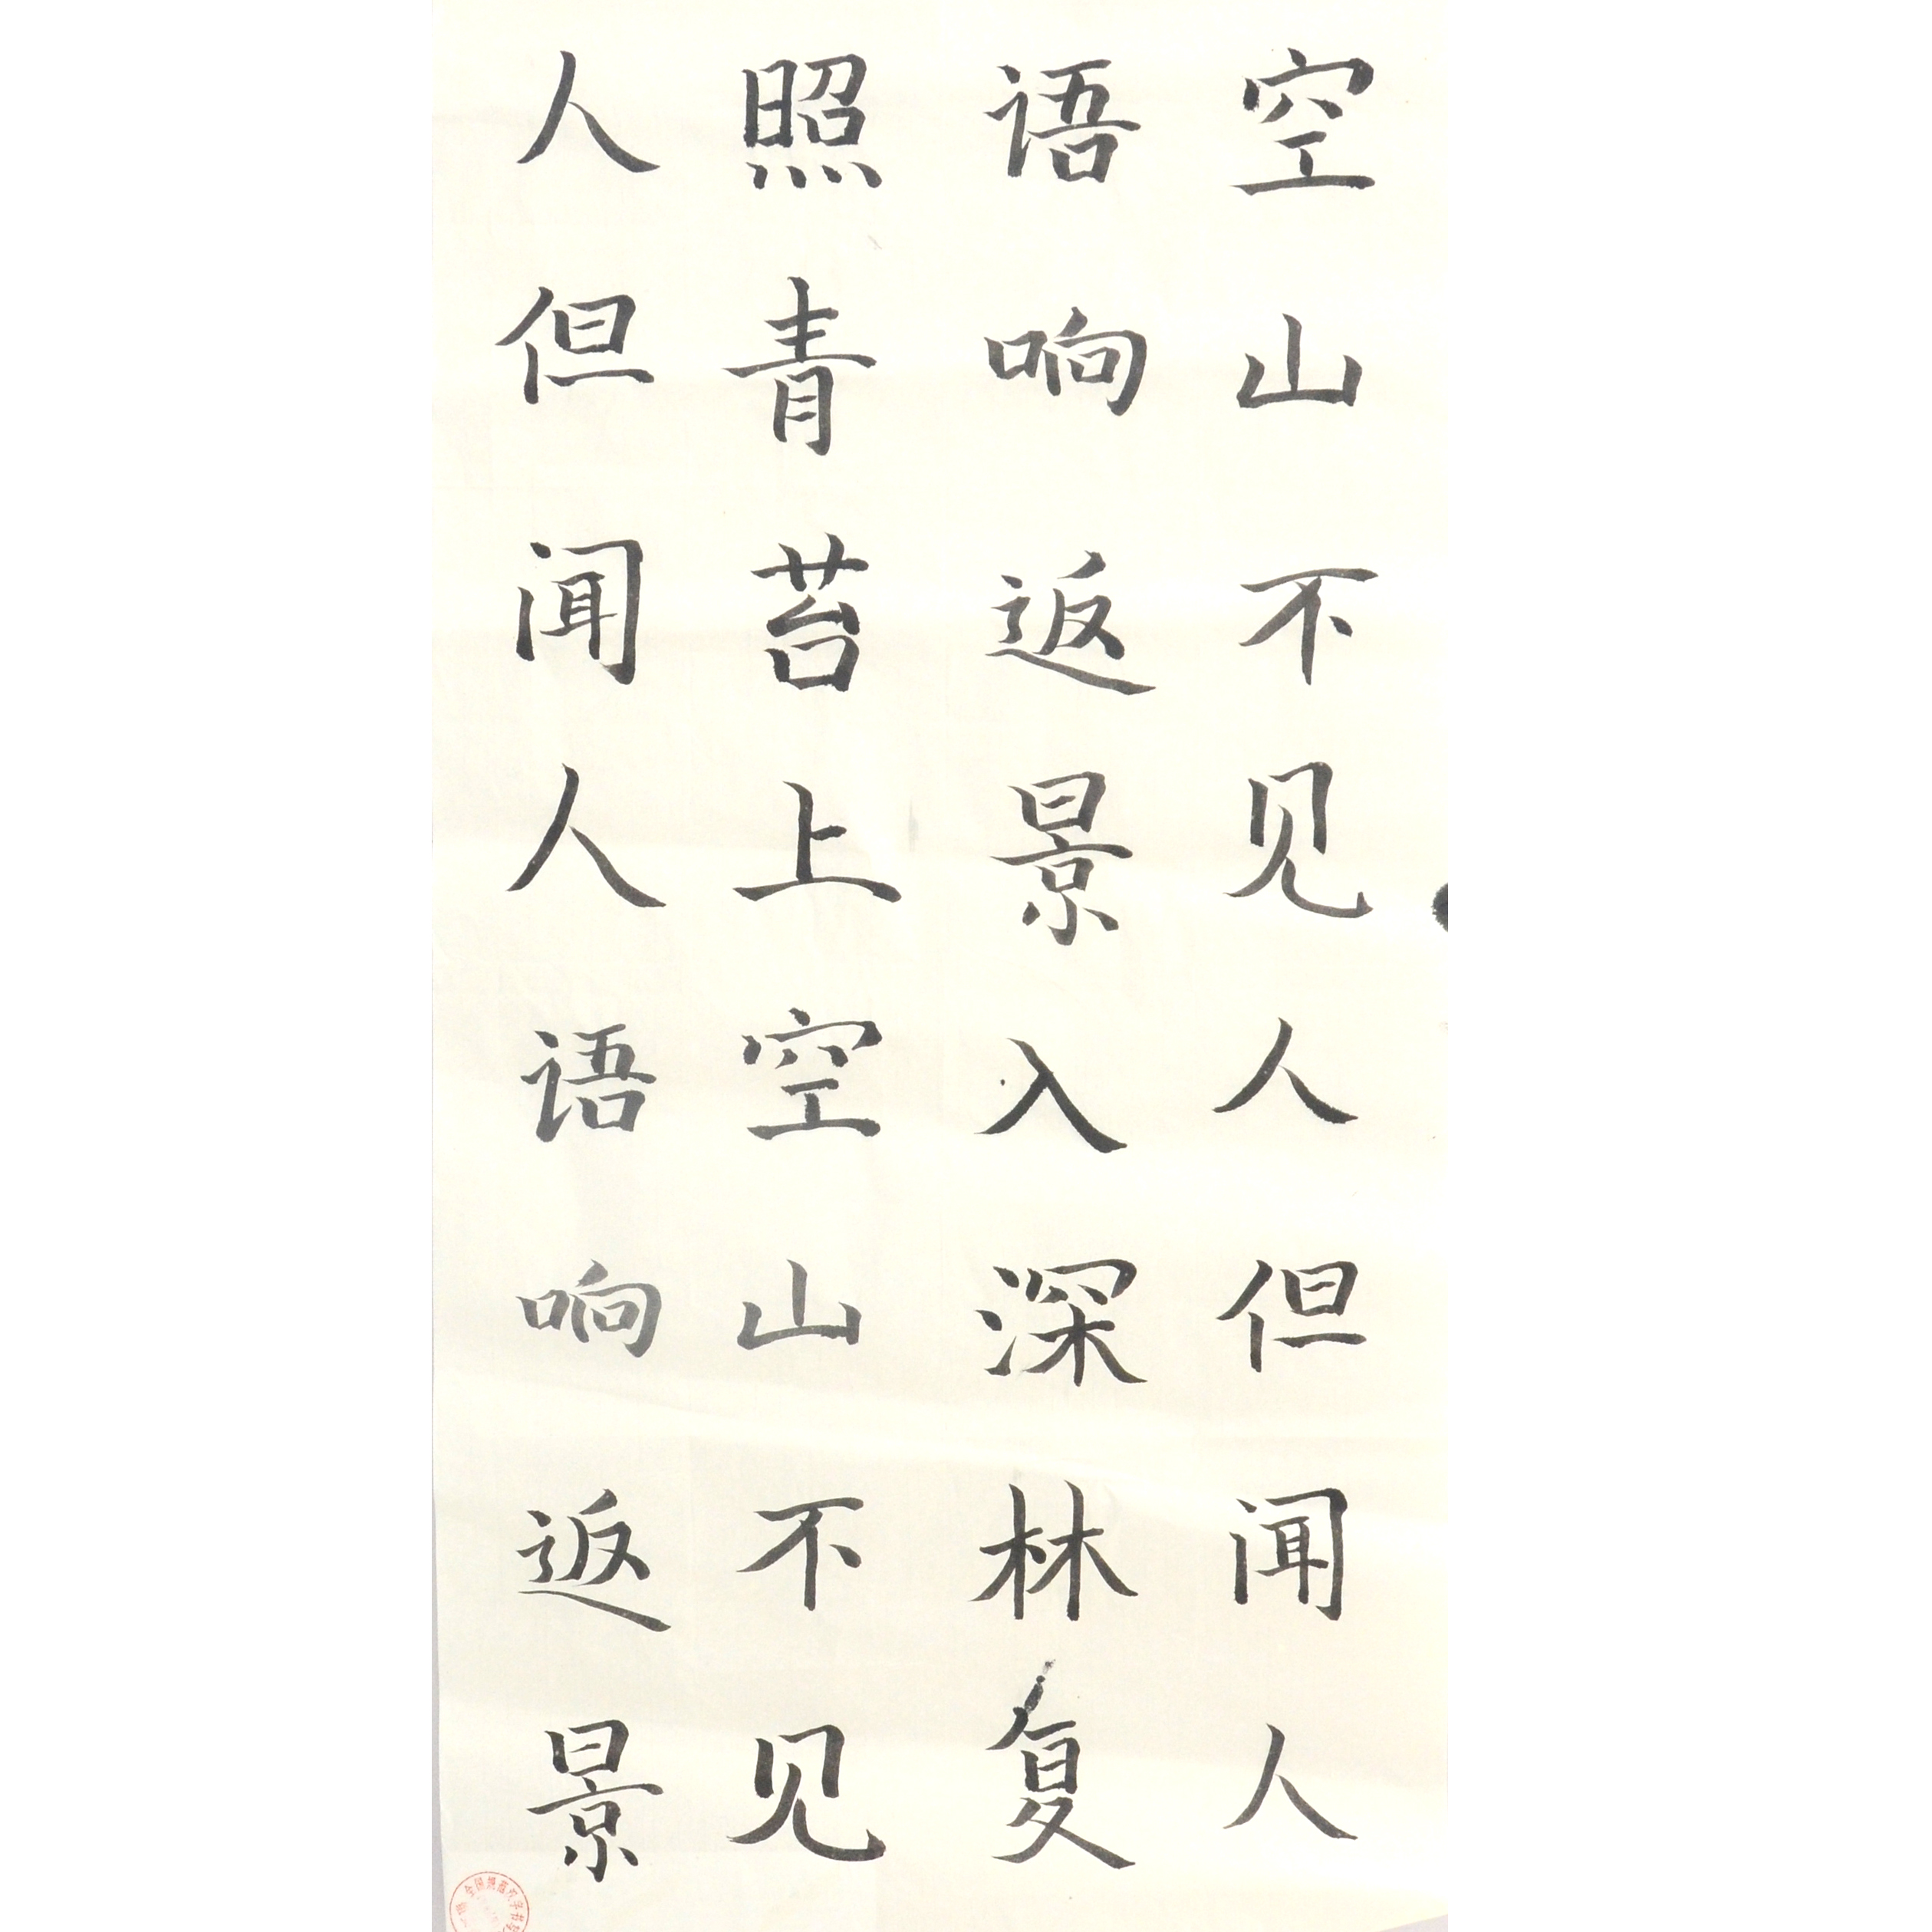 空山不见人但闻人
语响返景入深林复
照青苔上空山不见
人但闻人语响返景